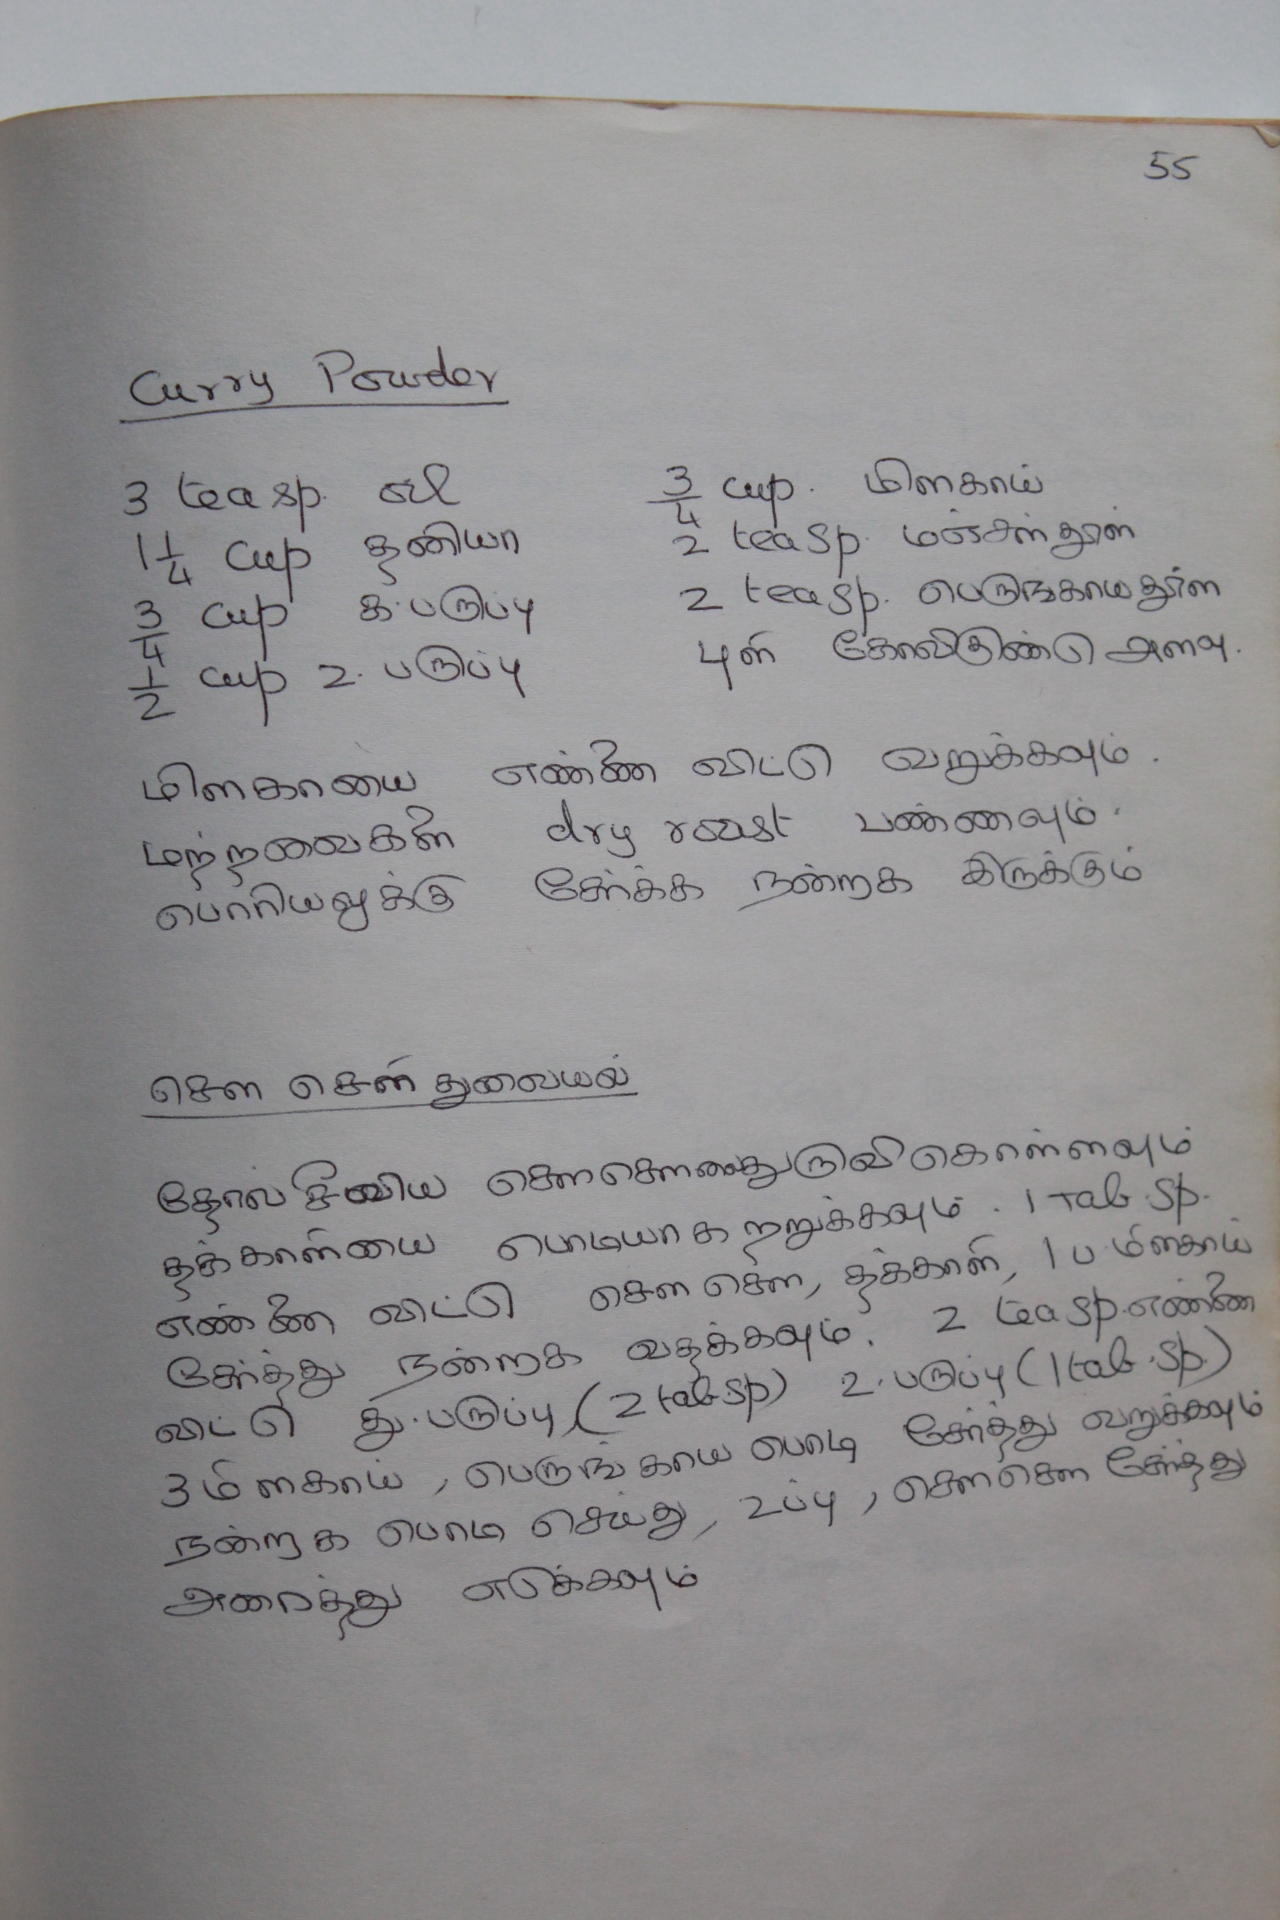 55
Curry Powder
3 teasp. oil
1 1/4 cup தனியா
3/4 cup க.பருப்பு
1/2 cup உ.பருப்பு
3/4 cup. மிளகாய்
2 teasp. மஞ்சள்தூள்
2 teasp. பெருங்காயதூள்
புளி கோலிகுண்டு அளவு.
மிளகாயை எண்ணை விட்டு வறுக்கவும்.
மற்றவைகளை dry roast பண்ணவும்.
பொரியலுக்கு சேர்க்க நன்றாக இருக்கும்
சௌ சௌ துவையல்
தோல் சீவிய சௌசௌ துருவி கொள்ளவும்
தக்காளியை பொடியாக நறுக்கவும். 1 Tab.sp.
எண்ணை விட்டு சௌ சௌ, தக்காளி, 1 ப மிளகாய்
சேர்த்து நன்றாக வதக்கவும். 2 teasp.எண்ணை
விட்டு து.பருப்பு (2 tab.sp) உ.பருப்பு (1 tab.sp.)
3 மிளகாய், பெருங்காய பொடி சேர்த்து வறுக்கவும்
நன்றாக பொடி செய்து, உப்பு, சௌசௌ சேர்த்து
அரைத்து எடுக்கவும்